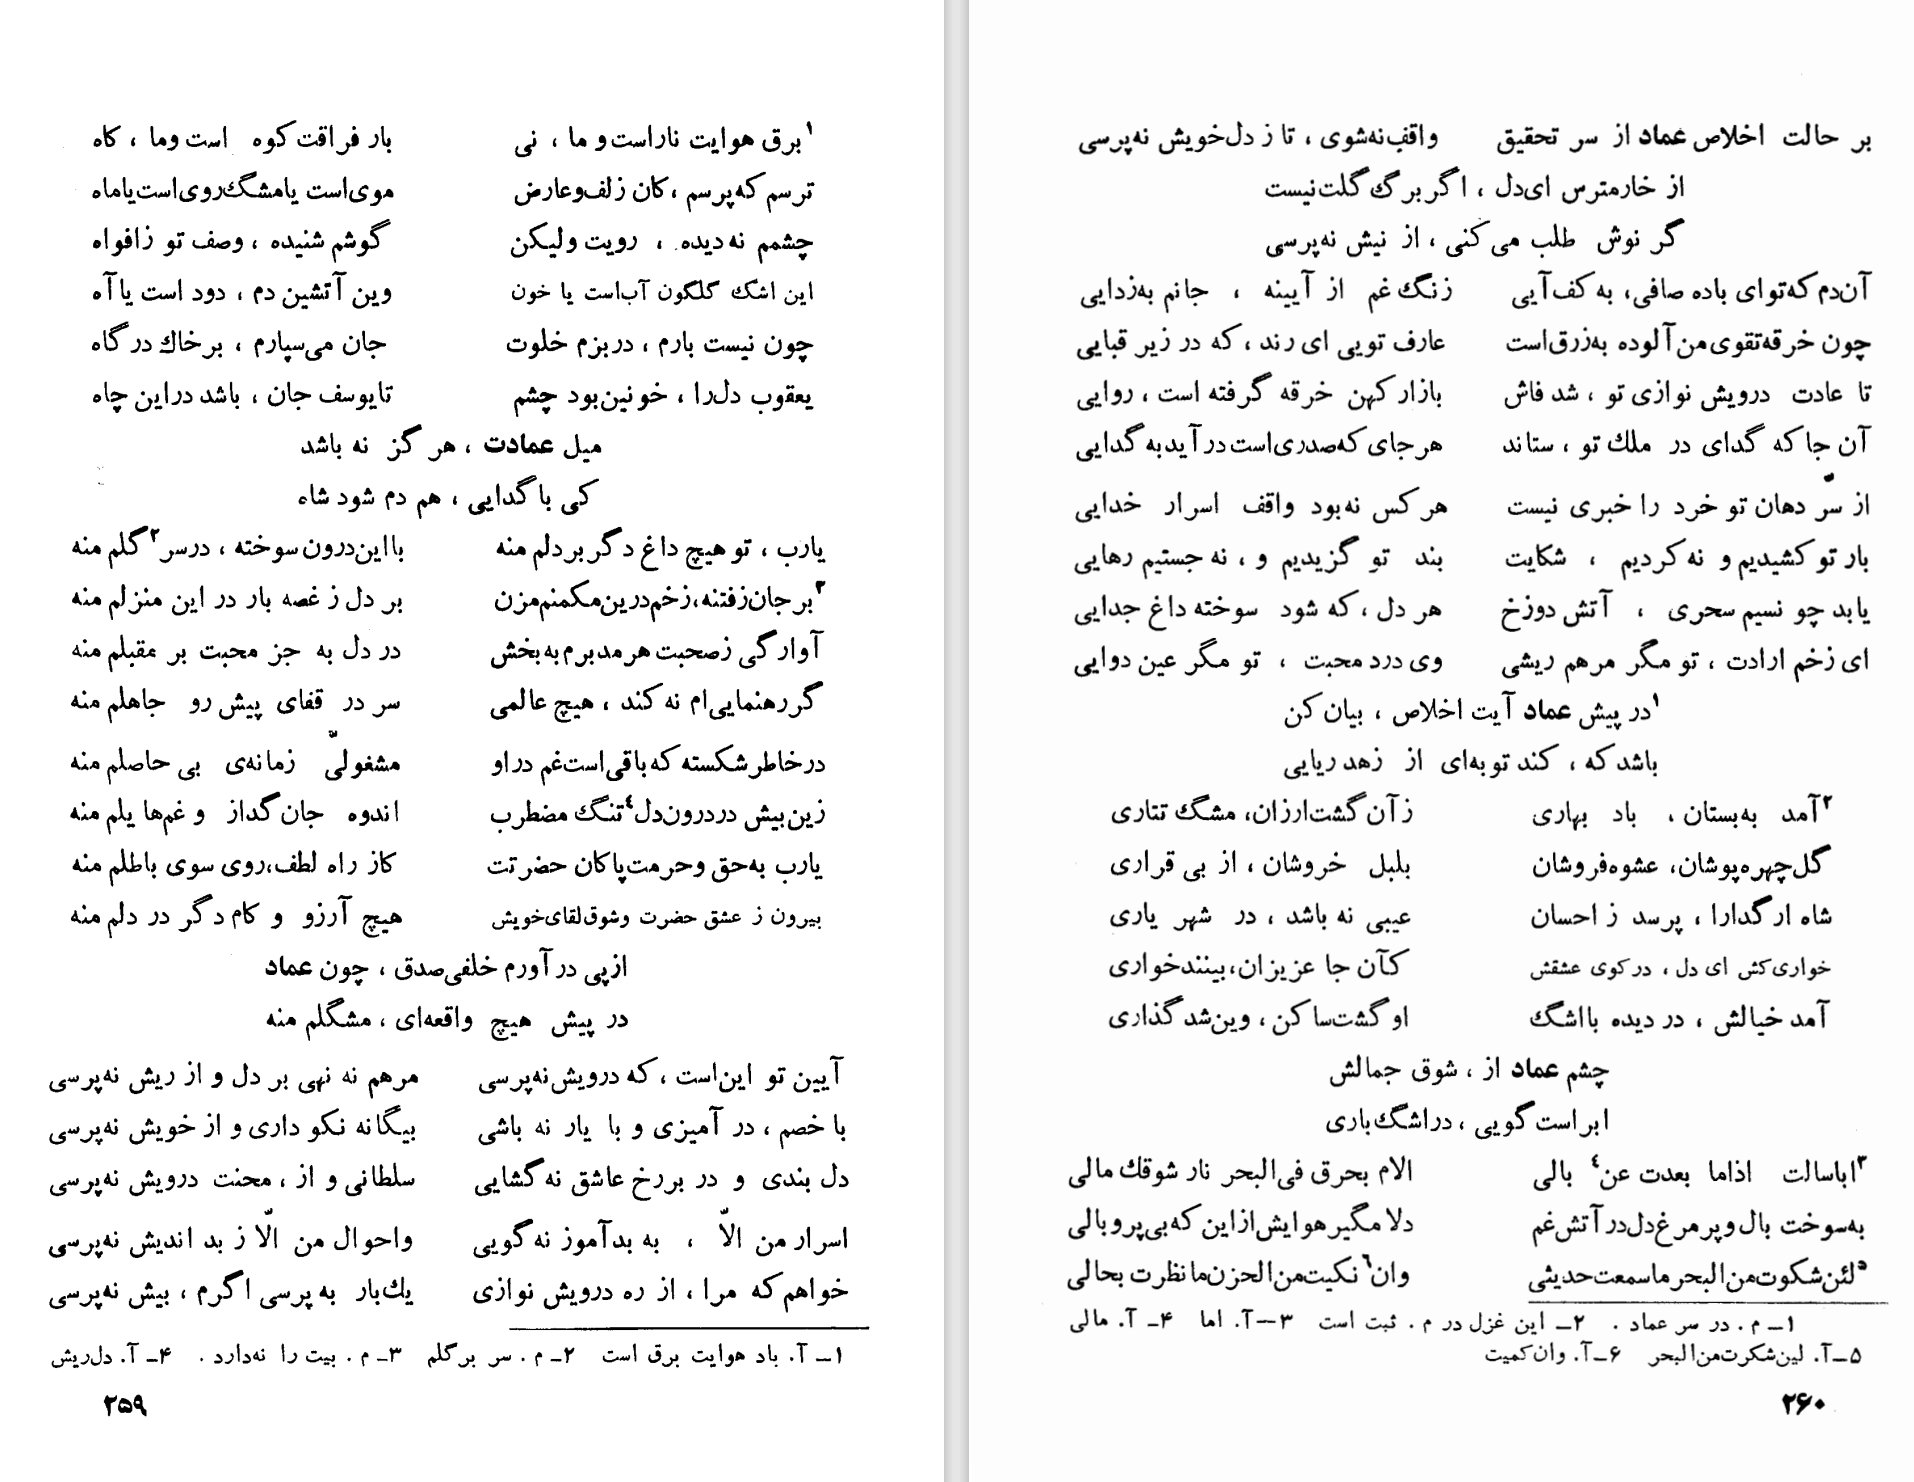 ۱برق هوایت ناراست و ما ، نی بار فراقت کوه است وما ، کاه
ترسم که پرسم ، کان زلف وعارض موی است یا مشگ روی است یا ماه
چشمم نه دیده ، رویت ولیکن گوشم شنیده ، وصف تو زافواه
این اشک گلگون آب است یا خون وین آتشین دم ، دود است یا آه
چون نیست بارم ، دربزم خلوت جان می‌سپارم ، برخاک درگاه
یعقوب دل‌را ، خونین بود چشم تا یوسف جان ، باشد دراین چاه
میل عمادت ، هرگز نه باشد
کی با گدایی ، هم دم شود شاه
یارب ، تو هیچ داغ دگر بر دلم منه با این درون سوخته ، درسر۲ گلم منه
۳بر جان زفتنه، زخم درین مکمنم مزن بر دل ز غصه بار در این منزلم منه
آوارگی ز صحبت هر مدبرم به بخش در دل به جز محبت بر مقبلم منه
گر رهنمایی‌ام نه کند ، هیچ عالمی سر در قفای پیش رو جاهلم منه
در خاطر شکسته که باقی است غم در او مشغولیّ زمانه‌ی بی حاصلم منه
زین بیش در درون دل۴ تنگ مضطرب اندوه جان گداز و غم‌ها یلم منه
یارب به حق و حرمت پاکان حضرتت کاز راه لطف، روی سوی باطلم منه
بیرون ز عشق حضرت و شوق لقای خویش هیچ آرزو و کام دگر در دلم منه
ازپی درآورم خلفی صدق ، چون عماد
در پیش هیچ واقعه‌ای ، مشگلم منه
آیین تو این است ، که درویش نه پرسی مرهم نه نهی بر دل و از ریش نه پرسی
با خصم ، در آمیزی و با یار نه باشی بیگانه نکو داری و از خویش نه پرسی
دل بندی و در بر رخ عاشق نه گشایی سلطانی و از ، محنت درویش نه پرسی
اسرار من الاّ ، به بدآموز نه گویی واحوال من الّا ز بد اندیش نه پرسی
خواهم که مرا ، از ره درویش نوازی یک بار به پرسی اگرم ، بیش نه پرسی
۱ــ آ. باد هوایت برق است ۲ــ م . سر برگلم ۳ــ م . بیت را نه‌دارد . ۴ــ آ. دل‌ریش
۲۵۹
بر حالت اخلاص عماد از سر تحقیق واقف نه شوی ، تا ز دل خویش نه پرسی
از خار مترس ای دل ، اگر برگ گلت نیست
گر نوش طلب می‌کنی ، از نیش نه پرسی
آن دم که تو ای باده صافی، به کف آیی زنگ غم از آیینه ، جانم به زدایی
چون خرقه تقوی من آلوده به زرق است عارف تویی ای رند ، که در زیر قبایی
تا عادت درویش نوازی تو ، شد فاش بازار کهن خرقه گرفته است ، روایی
آن جا که گدای در ملک تو ، ستاند هر جای که صدری است درآید به گدایی
از سرّ دهان تو خرد را خبری نیست هر کس نه بود واقف اسرار خدایی
بار تو کشیدیم و نه کردیم ، شکایت بند تو گزیدیم و ، نه جستیم رهایی
یابد چو نسیم سحری ، آتش دوزخ هر دل ، که شود سوخته داغ جدایی
ای زخم ارادت ، تو مگر مرهم ریشی وی درد محبت ، تو مگر عین دوایی
۱در پیش عماد آیت اخلاص ، بیان کن
باشد که ، کند توبه‌ای از زهد ریایی
۲آمد به بستان ، باد بهاری زآن گشت ارزان، مشگ تتاری
گل چهره پوشان، عشوه فروشان بلبل خروشان ، از بی قراری
شاه ار گدارا ، پرسد ز احسان عیبی نه باشد ، در شهر یاری
خواری کش ای دل ، در کوی عشقش کآن جا عزیزان، بینند خواری
آمد خیالش ، در دیده با اشگ او گشت ساکن ، وین شد گذاری
چشم عماد از ، شوق جمالش
ابر است گویی ، در اشگ باری
۳اباسالت اذاما بعدت عن۴ بالی الام بحرق فی البحر نار شوقك مالی
به سوخت بال و پر مرغ دل در آتش غم دلا مگیر هوایش از این که بی پر و بالی
۵لئن شکوت من البحر ما سمعت حدیثی وان۶ نکیت من الحزن ما نظرت بحالی
۱ــ م . در سر عماد . ۲ــ این غزل در م . ثبت است ۳ــ آ. اما ۴ــ آ. مالی
۵ــ آ. لین شکرت من البحر ۶ــ آ. وان کمیت
۲۶۰